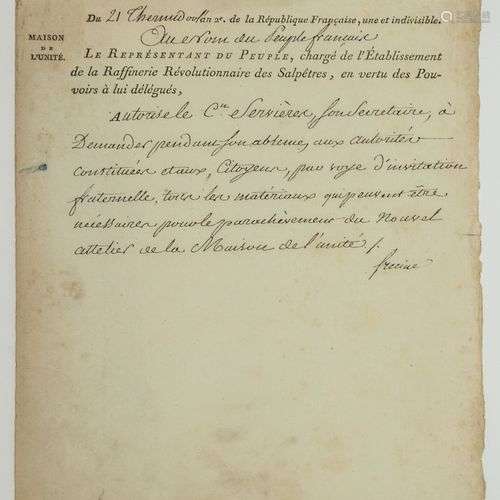 Du 21 Thermidor l'an 2e. de la République Française, une et indivisible.
Au Nom du Peuple français
MAISON
DE
L'UNITÉ.
LE REPRÉSENTANT DU PEUPLE, chargé de l'Établissement
de la Raffinerie Révolutionnaire des Salpêtres, en vertu des Pou-
voirs à lui délégués,
Autorise le Cen Servieres, son Secretaire, à
Demander pendant son absence, aux autorités
constituées et aux Citoyens, par voye d'invitation
fraternelle, tous les matériaux qui peuvent être
nécessaires pour le parachèvement du Nouvel
attelier de la Maison de l'unité /.
frecine